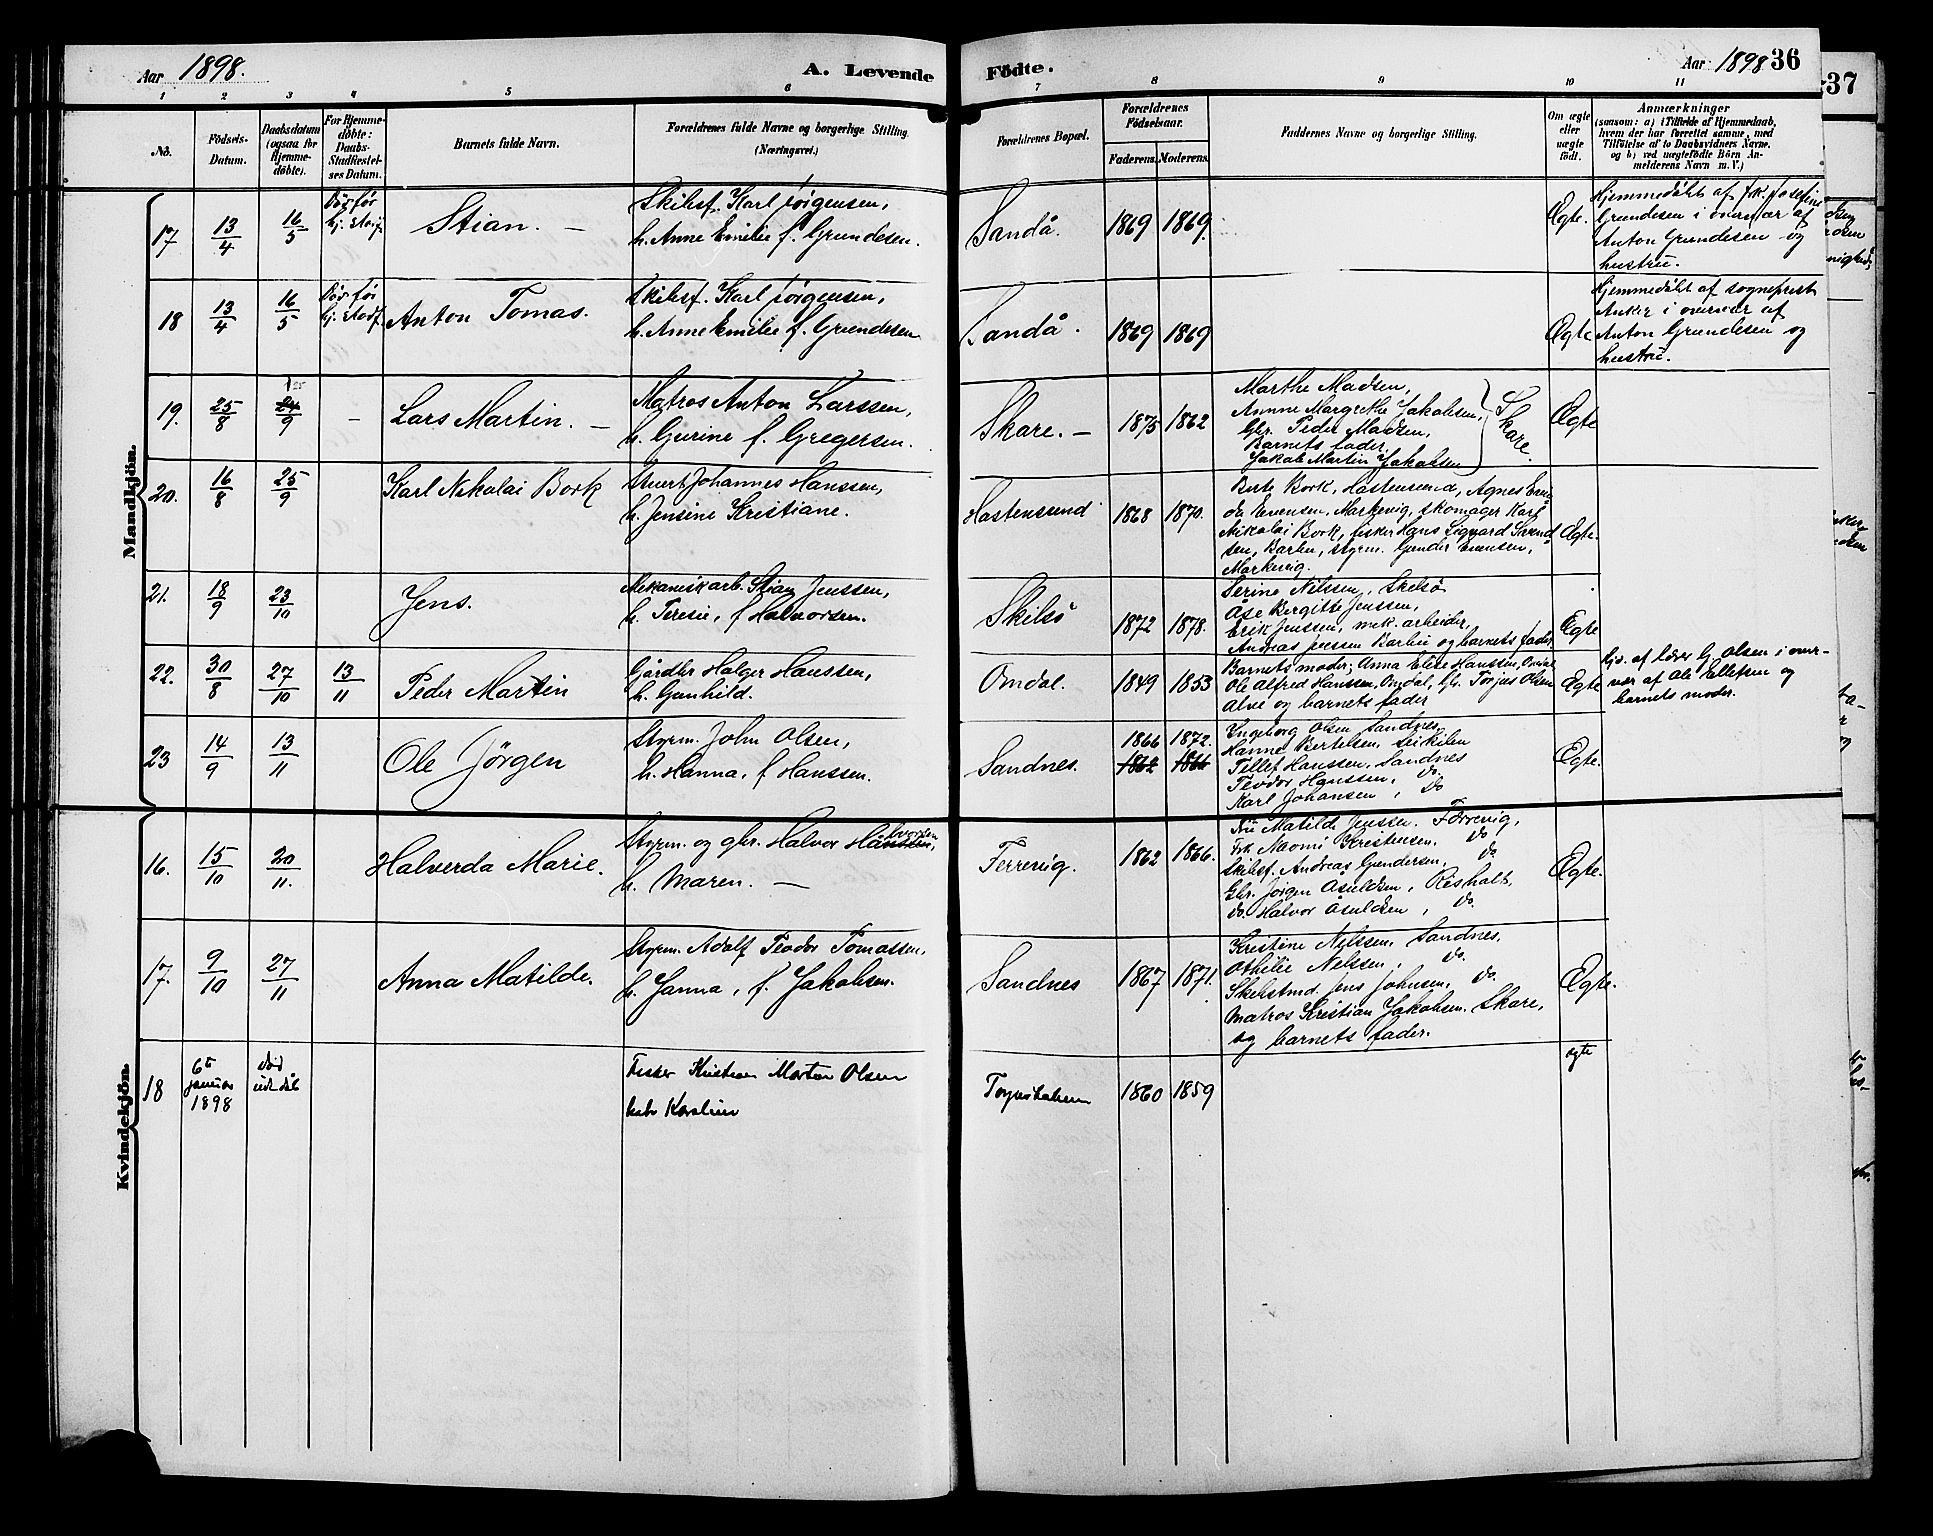 Aar 1898.
A. Levende
Födte.
Aar 1898 36
37
1 2 3 4 5 6 7 8 9 10 11
No.
Födsels-
Datum.
Daabsdatum
(ogsaa for
Hjemme-
döbte).
For Hjemme-
döbte:
Daabs-
Stadfæstel-
ses Datum.
Barnets fulde Navn.
Forældrenes fulde Navne og borgerlige Stilling.
(Næringsvei.)
Forældrenes Bopæl.
Forældrenes
Födselsaar.
Faderens. Moderens.
Faddernes Navne og borgerlige Stilling.
Om ægte
eller
uægte
födt.
Anmærkninger
(saasom: a) i Tilfælde af Hjemmedaab,
hvem der har forrettet samme, med
Tilföielse af to Daabsvidners Navne.
og b) ved uægtefödte Börn An-
melderens Navn m. V.)
Mandkjön.
17 13/4 16/5 Död før hj. stadf. Stian. —
Skibsf. Karl Jørgensen,
h. Anne Emilie f. Grundesen.
Sandå. 1869 1869. Ægte.
Hjemmedøbt af frk. Josefine
Grundesen i overvær af
Anton Grundesen og
hustru.
18 13/4 16/5 Död før hj. stadf. Anton Tomas.
Skibsf. Karl Jørgensen,
h. Anne Emilie f. Grundesen
Sandå. 1869 1869 Ægte
Hjemmedøbt af sogneprest
Anker i overvær af
Anton Grundesen og
hustru.
19. 25/8 24/9 – Lars Martin. –
Matros Anton Larssen,
h. Gurine f. Gregersen.
Skare. – 1875 1862
Marthe Madsen,
Annne Margrethe Jakobsen,
Gbr. Peder Madsen,
Barnets fader,
Jakob Martin Jakobsen
Skare.
Ægte
20. 16/8 25/9 Karl Nikolai Bork
Stuert Johannes Hanssen,
h. Jensine Kristiane.
Hastensund 1868 1870.
Berte Bork, Hastensund, Agnes
Evensen, Markevig, skomager Karl
Nikolai Bork, fisker Hans Sigvard
Barbu, styrm. Gunder Evensen,
Markevig.
Ægte.
21. 18/9 23/10 Jens.
Mekanisk arb. Stian Jenssen,
h. Teresie, f. Halvorsen.
Skilsö 1872 1878.
Serine Nilssen, Skelsö
Åse Bergitte Jenssen,
Erik Jenssen, mek. arbeider,
Andreas Barbu og barnets fader
Ægte
22. 30/8 27/10 13/11 Peder Martin
Gårdbr Holger Hanssen,
h. Gunhild.
Omdal. 1849 1853
Barnets moder, Anna Elise Hanssen, Omdal
Ole Alfred Hanssen, Omdal, Gbr. Torjus Olsen
Alve og barnets fader
Ægte
Hjd. af lærer G. Olsen i over-
vær af Ole Ellefsen og
barnets moder.
23 14/9 13/11 Ole Jörgen
Styrm. John Olsen,
h. Hanna, f. Hanssen.
Sandnes. 1866 1872.
1862 1866
Ingeborg Olsen Sandnes,
Hanne Bertelsen,
Tellef Hanssen, Sandnes
Teodor Hanssen, do
Karl Johansen, do
Ægte.
Kvindekjön.
16. 15/10 20/11. Halverda Marie.
Styrm. og gbr. Halvor Halvorsen,
h. Maren. —
Ferrevig. 1862 1866.
Fru Matilde Jenssen. Færrevig,
Frk. Naomi Kristensen. do
Skibsf. Andreas Gundersen, do
Gbr. Jörgen Asuldsen, Risholt,
do. Halvor Åsuldsen, do.
Ægte.
17. 9/10 27/11 Anna Matilde.
Styrm. Adolf Teodor Tomassen,
h. Janna, f. Jakobsen.
Sandnes 1867 1871.
Kristine Nilssen, Sandnes,
Othilie Nilssen, do.
Skibstmd. Jens Johnsen, do.
Matros Kristian Jakobsen. Skare,
og barnets fader.
Ægte.
18 6te januar 1898 död udøbt
Fisker Kristian Morten Olsen
Karoline
1860 1859
ægte